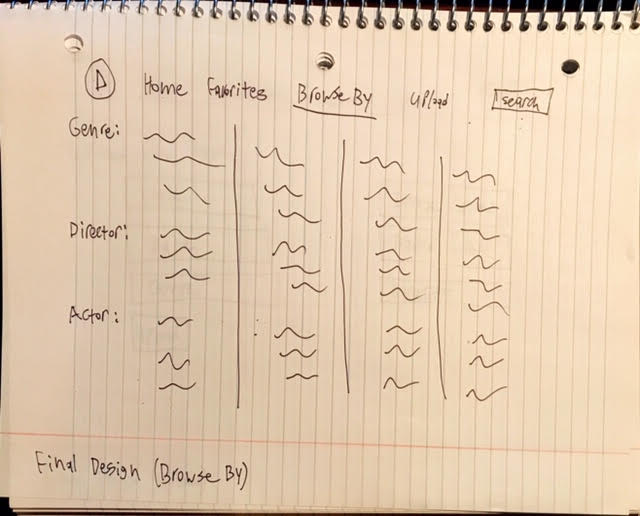 D Home Favorites Browse By Upload search
Genre:
Director:
Actor:
Final Design (Browse By)